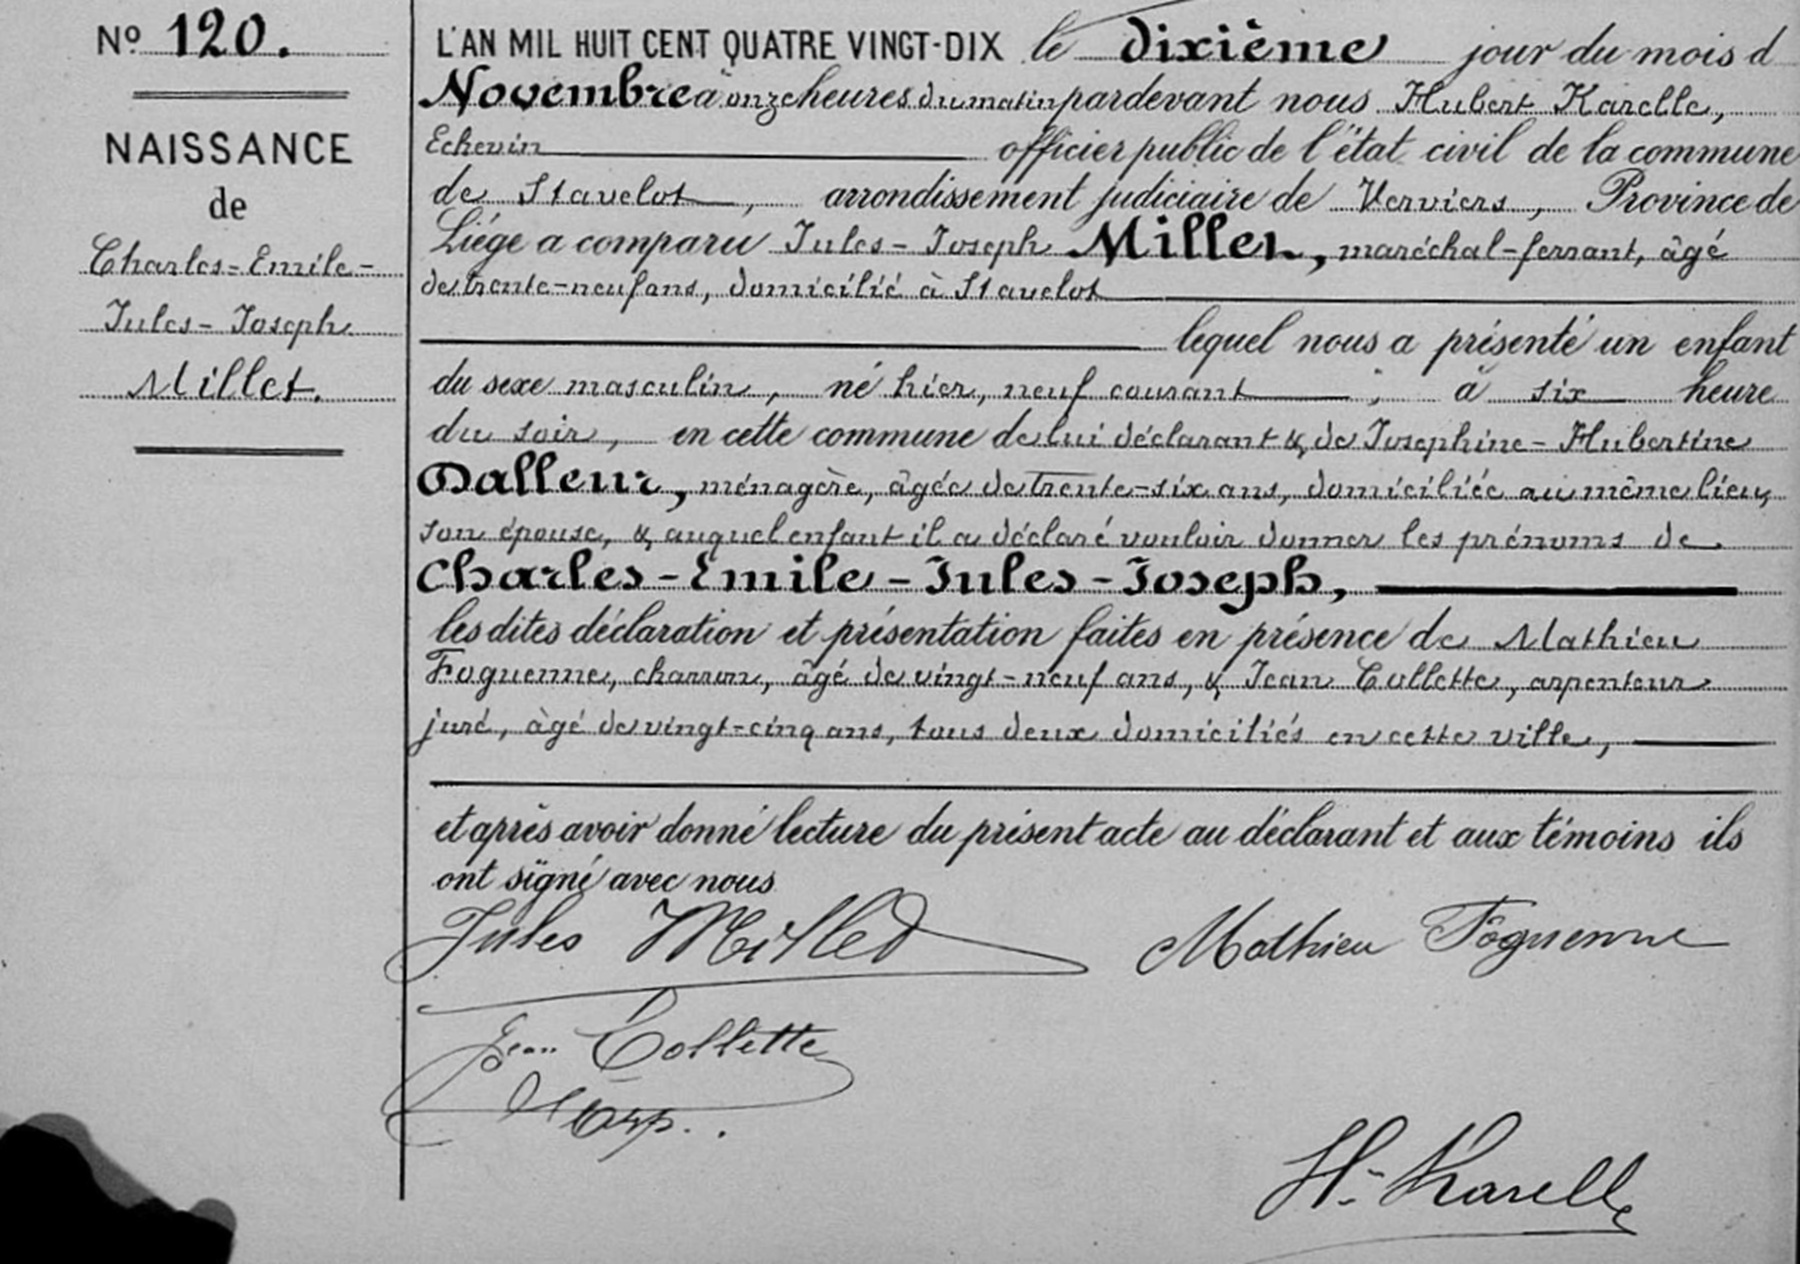 Nº 120.
NAISSANCE
de
Charles-Emile-
Jules-Joseph
Millet.
L'AN MIL HUIT CENT QUATRE VINGT-DIX le dixième jour du mois d
Novembre à onze heures du matin pardevant nous Hubert Karelle,
Echevin officier public de l'état civil de la commune
de Stavelot, arrondissement judiciaire de Verviers, Province de
Liége a comparu Jules-Joseph Millet, maréchal-ferrant, âgé
de trente-neuf ans, domicilié à Stavelot
lequel nous a présenté un enfant
du sexe masculin, né hier, neuf courant, à six heure
du soir, en cette commune de lui déclarant & de Josephine-Hubertine
Dalleur, ménagère, âgée de trente-six ans, domiciliée au même lieu,
son épouse, & auquel enfant il a déclaré vouloir donner les prénoms de
Charles-Emile-Jules-Joseph,
les dites déclaration et présentation faites en présence de Mathieu
Foguenne, charron, âgé de vingt-neuf ans, & Jean Collette, arpenteur
juré, âgé de vingt-cinq ans, tous deux domiciliés en cette ville,
et après avoir donné lecture du présent acte au déclarant et aux témoins ils
ont signé avec nous
Jules Millet
Mathieu Foguenne
Jean Collette
H. Karelle